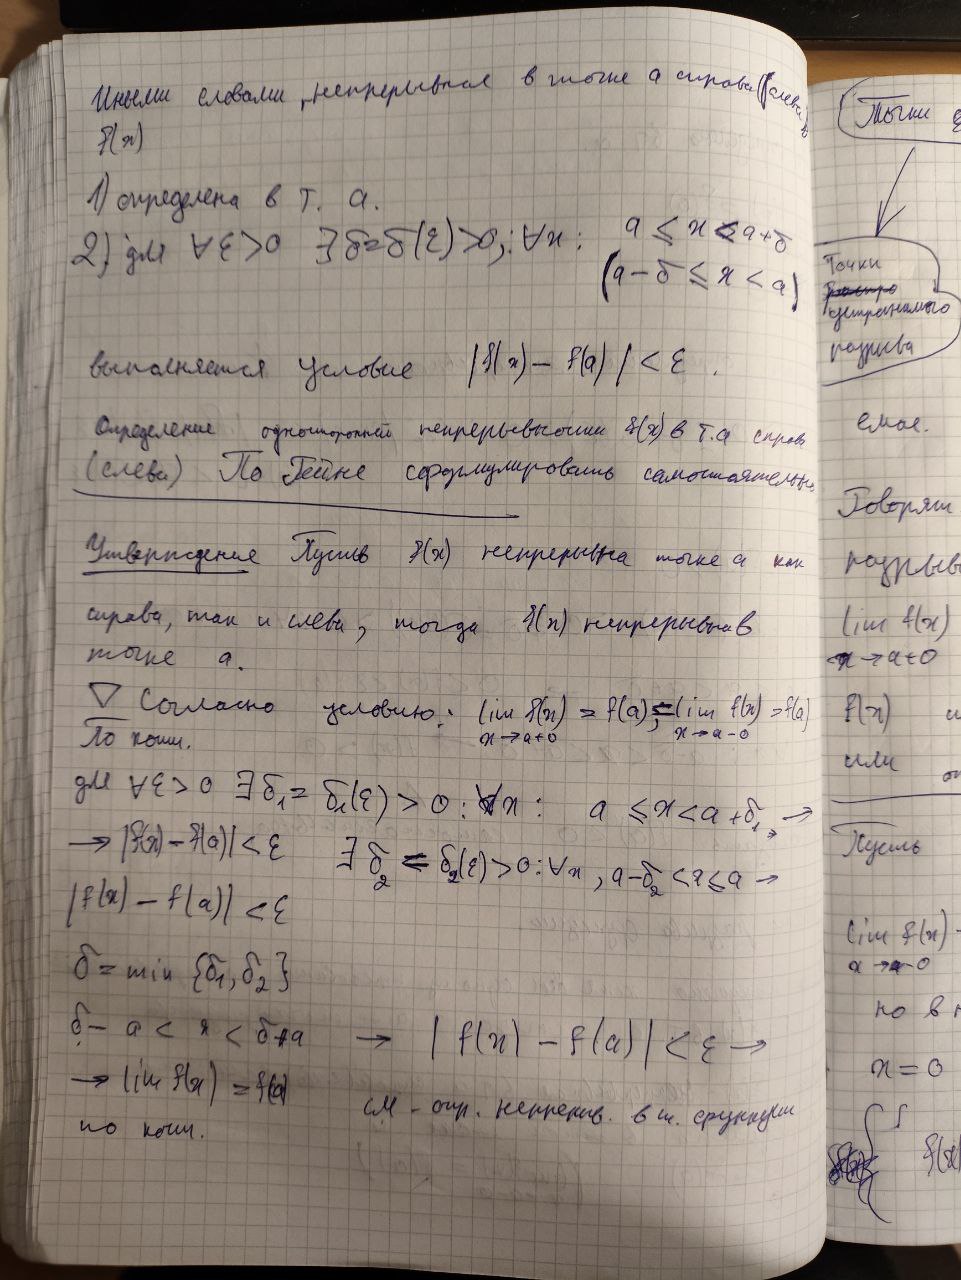 Иными словами, непрерывная в точке а справа (слева)
f(x)
1) определена в т. а.
2) для ∀ε>0 ∃δ=δ(ε)>0,: ∀x: a ≤ x < a+δ
(a-δ ≤ x < a)
выполняется условие |f(x) - f(a)| < ε.
Определение односторонней непрерывности f(x) в т.а справа
(слева) По Гейне сформулировать самостоятельно
Утверждение Пусть f(x) непрерывна точке а как
справа, так и слева, тогда f(x) непрерывна в
точке а.
▽ Согласно условию: lim f(x) = f(a), lim f(x) = f(a)
x→a+0 x→a-0
По коши.
для ∀ε>0 ∃δ₁=δ₁(ε)>0: ∀x: a ≤ x < a+δ₁, →
→ |f(x) - f(a)| < ε ∃δ₂ = δ₂(ε)>0: ∀x, a-δ₂ < x ≤ a →
|f(x) - f(a)| < ε
δ = min {δ₁, δ₂}
δ - a < x < δ+a → |f(x) - f(a)| < ε →
→ lim f(x) = f(a)
см - опр. в т. функции
по коши.
Точки
Точки
устранимого
разрыва
емое.
Говорят
разрыв
lim f(x)
x→a+0
f(x)
или
Пусть
lim f(x)
x→-0
но в
x=0
f(x)